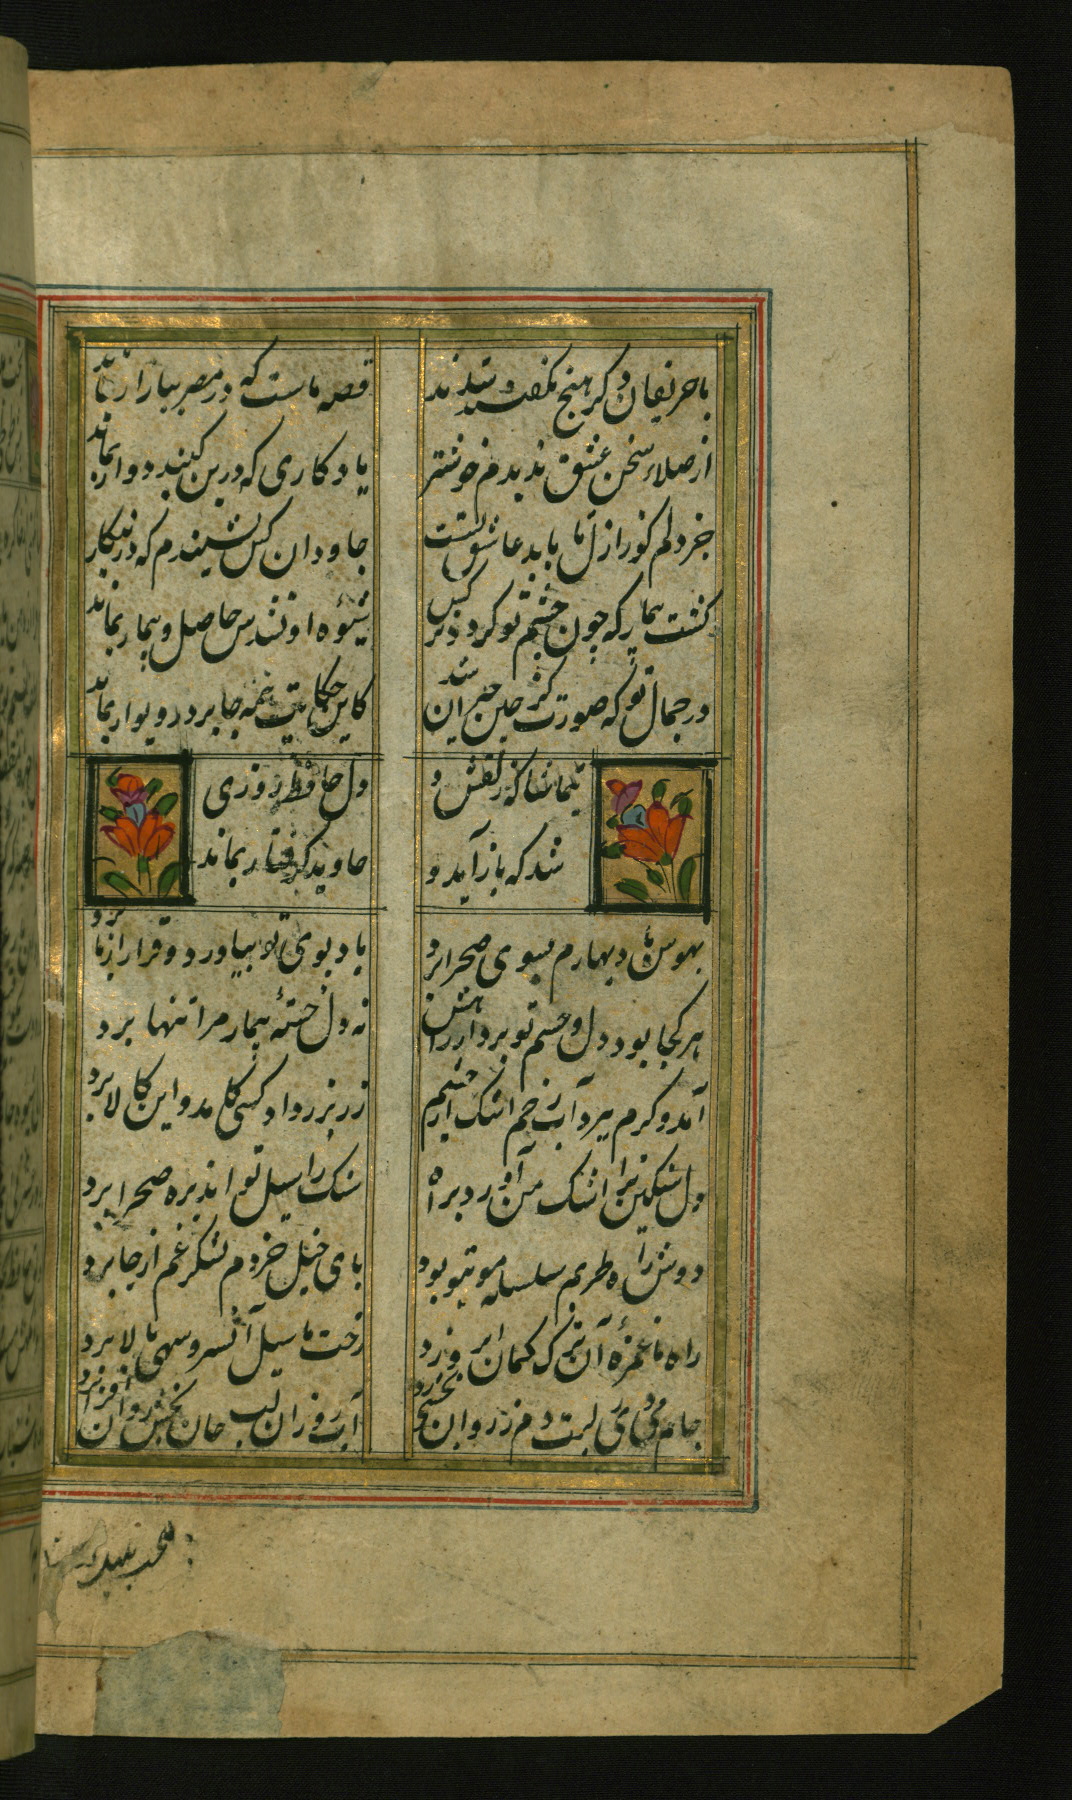 با حریفان دگر هیچ نگفت و شنیدند
قصه ماست که در هر سر بازار بماند
از صلاء سخن عشق ندیدم خوشتر
یادکاری که درین کنبد دوار بماند
جز دلم کو ز ازل تا بابد عاشق
جاودان کس نشنیدم که در کار
کشت بیمار که چون چشم تو کردد نرکس
شیوه او نشدش حاصل و بیمار بماند
در جمال تو که صورت کر چین حیران شد
کاین حکایت همه جا بر در و دیوار بماند
بتماشا که زلفش و
دل حافظ روزی
شد که باز آید و
جاوید کرفتار بماند
بهوس باد بهارم بسوی صحرا برد
باد بوی تو بیاورد و قرار از ما برد
هر کجا بود دل و چشم تو برد از راهش
نه دل خسته بیمار مرا تنها برد
آمد و کرم ببرد آب رخم اشک از چشم
زر بزر داد کسی کامد و این کالا برد
دل سنکین ترا اشک من آورد براه
سنک را سیل تواند بره صحرا برد
دوش راه طربم سلسله موی تو بود
پای خیل خردم لشکر غم از جا برد
راه ما غمزه آن ترک کمان ابرو زد
رخت ما سیل آن سرو سهی بالا برد
جام می دی ز لبت دم ز روان بخشی زد
آب می زان لب جان بخش روان افزا برد